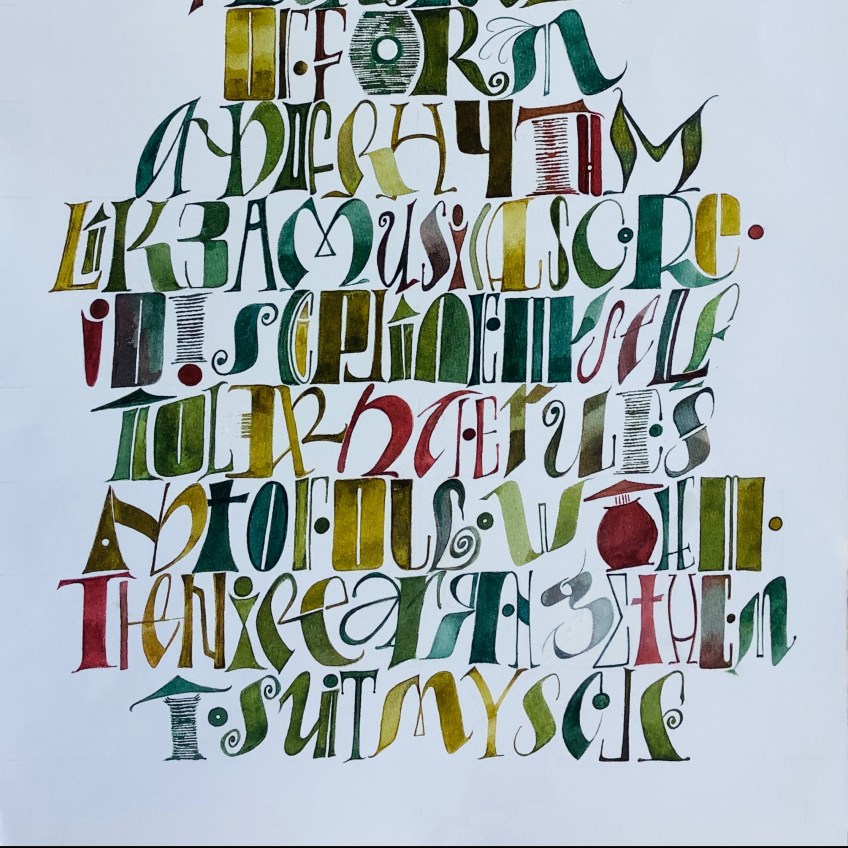 OF FORM
AND OF RHYTHM
LIKE A MUSICAL SCORE.
I DISCIPLINE MYSELF
TO LEARN THE RULES
AND TO FOLLOW THEM.
THEN I REARRANGE THEM
TO SUIT MYSELF